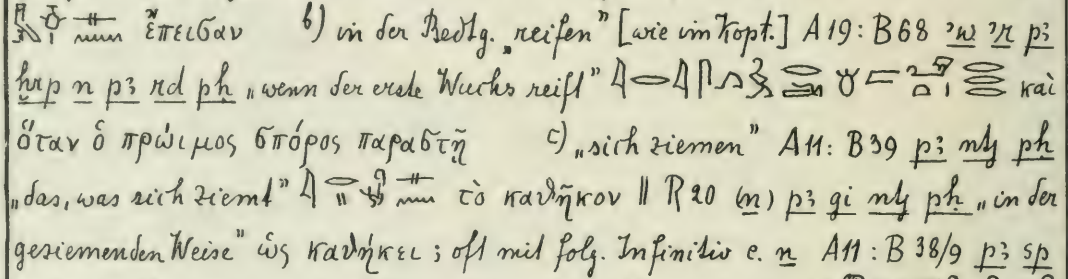 ἔπεισαν b) in der Bedtg. „reifen" [wie im Kopt.] A19: B68 ꜣw ꜣr pꜣ
ḥrp n pꜣ rd pḥ „wenn der erste Wuchs reift" καὶ
ὅταν ὁ πρώιμος σπόρος παραστῇ c) „sich ziemen" A11: B39 pꜣ ntj pḥ
„das, was sich ziemt" τὸ καθῆκον || R20 (n) pꜣ gi ntj pḥ „in der
geziemenden Weise" ὡς καθήκει; oft mit folg. Infinitiv c. n A11: B38/9 pꜣ sp